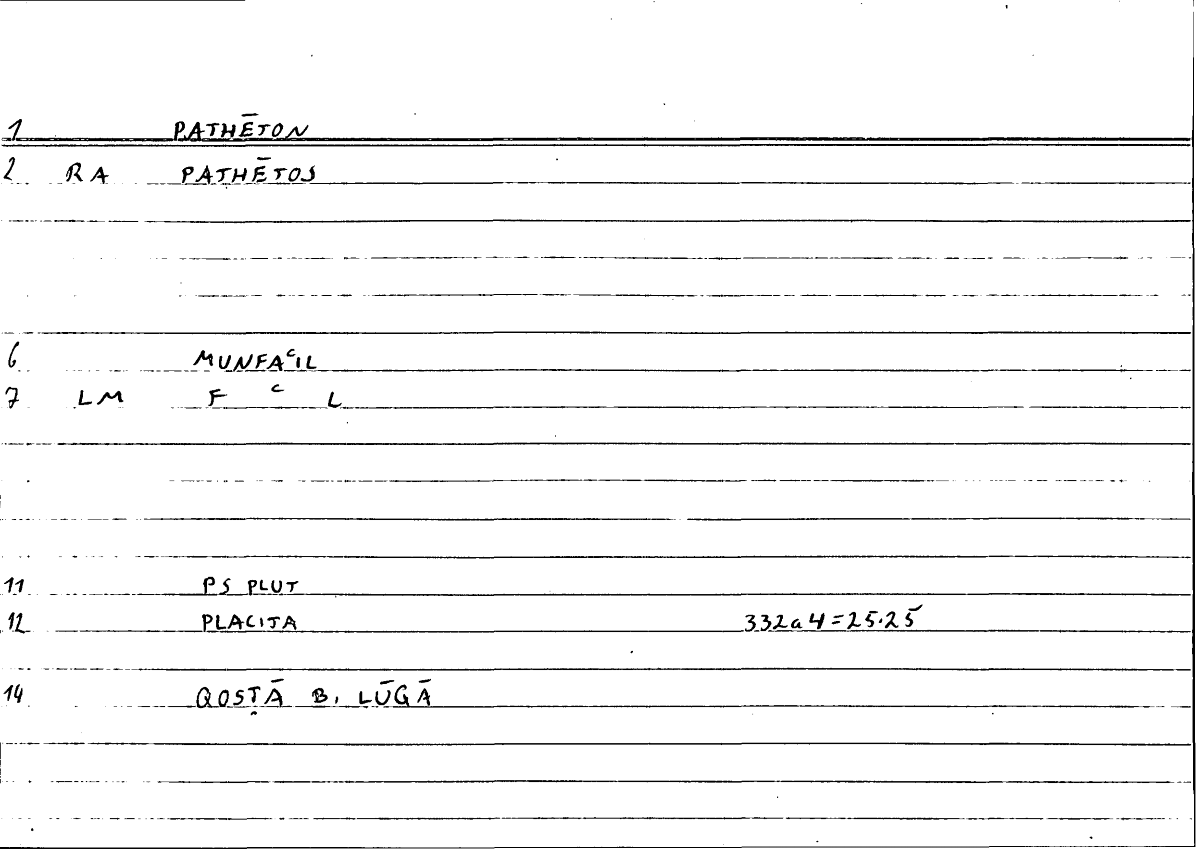 1 PATHĒTON
2 RA PATHĒTOS
6 MUNFAᶜIL
7 LM F ᶜ L
11 PS PLUT
12 PLACITA 332a4=25.25
14 QOSṬĀ B. LŪGĀ